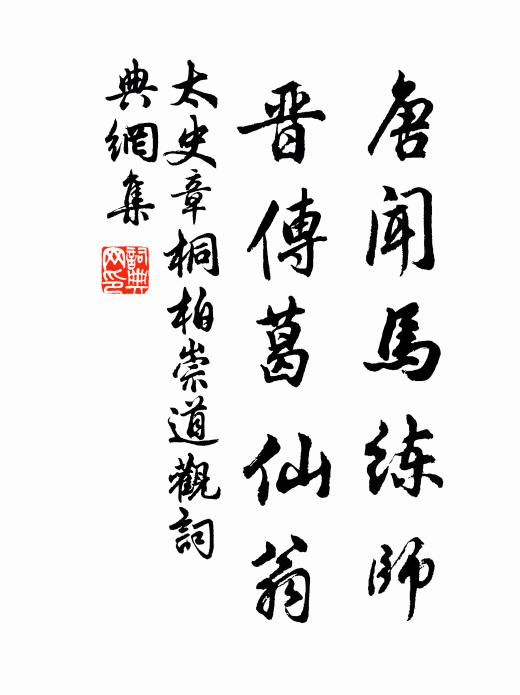 唐聞馬練師
晋傳葛仙翁
太史章桐柏崇道觀詞
典網集
詞典网印